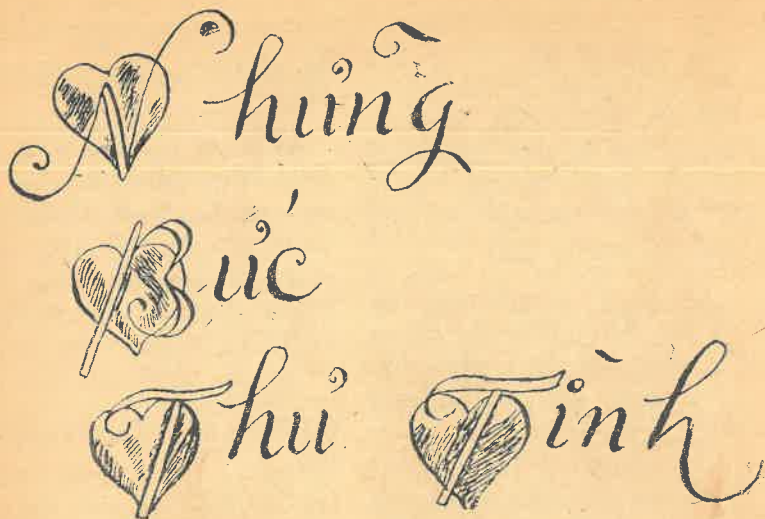 Những
Bức
Thư Tình